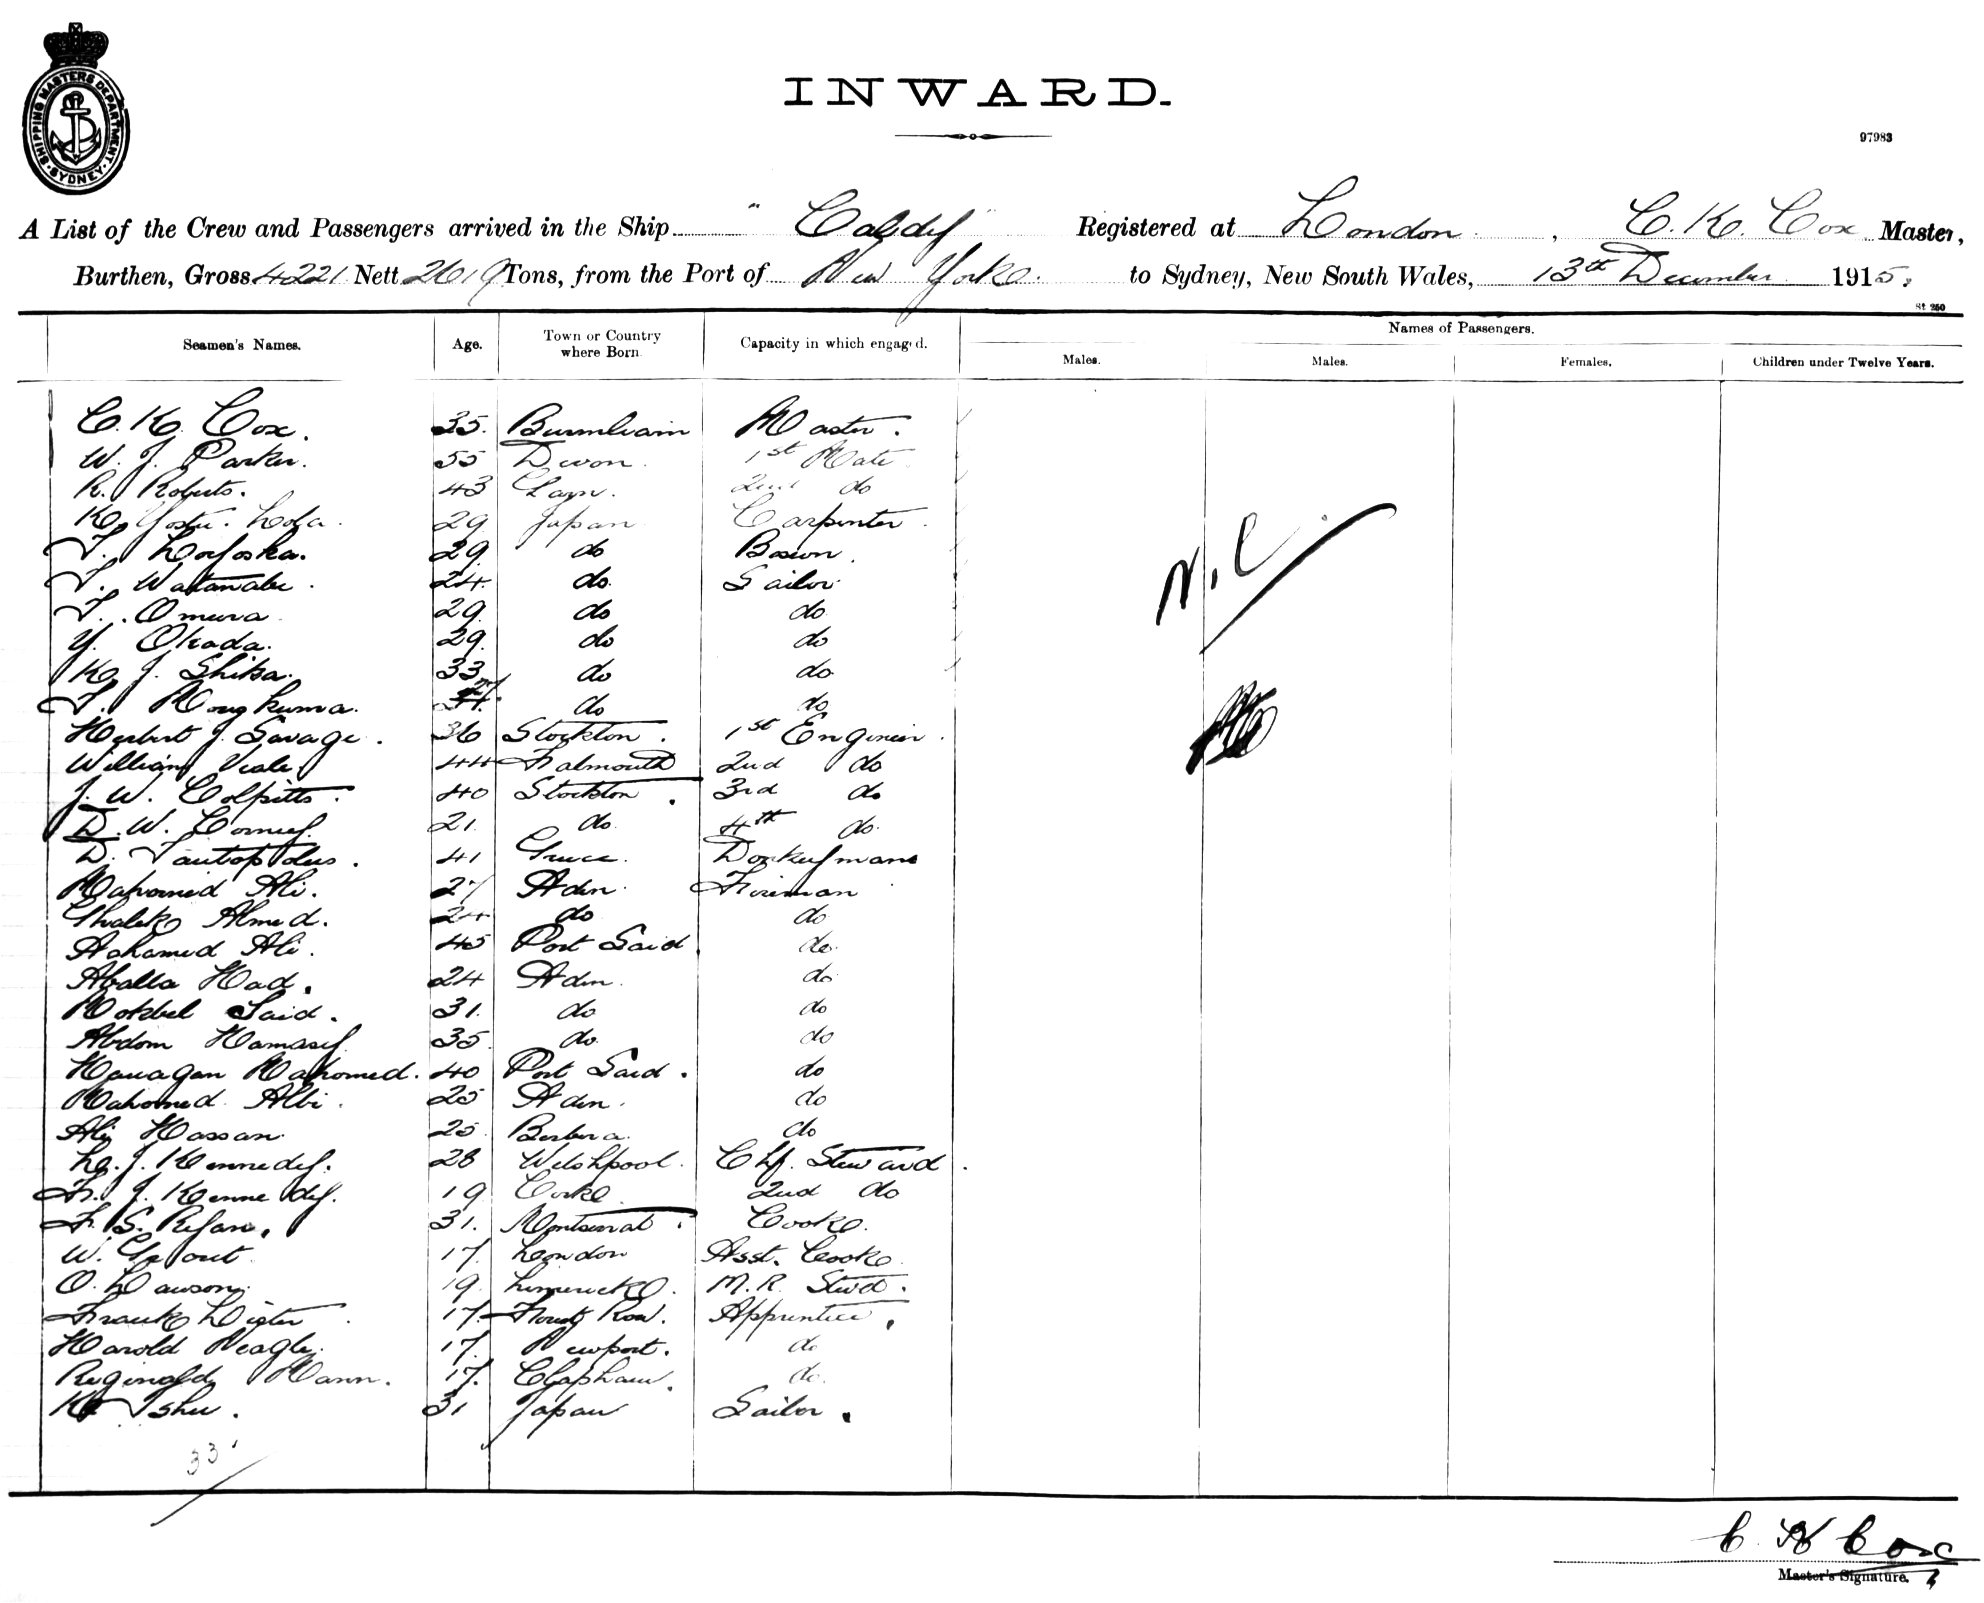 SHIPPING MASTERS DEPARTMENT SYDNEY
INWARD.
97983
A List of the Crew and Passengers arrived in the Ship "Caldy" Registered at London, C. K. Cox Master,
Burthen, Gross 4221 Nett 2619 Tons, from the Port of New York to Sydney, New South Wales, 13th December 1915.
St 250
Seamen's Names. Age. Town or Country where Born. Capacity in which engaged. Names of Passengers.
Males. Males. Females. Children under Twelve Years.
C. K. Cox. 35. Burnham Master.
W. J. Parker. 55 Devon. 1st Mate
R. Roberts. 43 2nd do
K. 29 Japan Carpenter.
T. 29. do Bosun.
T. Watanabe. 24. do. Sailor.
T. Omura 29. do do
Y. Okada. 29. do do
K. J. Shika. 33 do do.
T. do do
Herbert J. Savage. 36 Stockton. 1st Engineer.
William Veale. 44 Falmouth 2nd do
J. W. Colpitts. 40 Stockton. 3rd do
D. W. 21. do. 4th do.
D. 41 Greece. Donkeyman
Mahomed Ali. 27 Aden. Fireman
Ahmed. 24 do do
Mahamed Ali. 45 Port Said do.
Aballa Had. 24 Aden. do
Mokbel Said. 31. do do
Abdom 35 do. do
Mahomed. 40 Port Said. do
Mahomed Albi. 25 Aden. do
Ali Hassan. 25. Berbera. do
L. J. Kennedy. 28 Welshpool. Chf. Steward.
F. J. Kennedy. 19 Cork 2nd do
F. S. Ryan. 31. Montserrat. Cook.
W. 17. London Asst. Cook
O. Dawson. 19. Limerick. M. R. Stwd.
Frank Lister. 17. Forest Row. Apprentice.
Harold Neagle. 17. Newport. do
Reginald Mann. 17. Clapham. do.
K. Ishu. 31 Japan Sailor.
N. C.
33
C K Cox
Master's Signature.